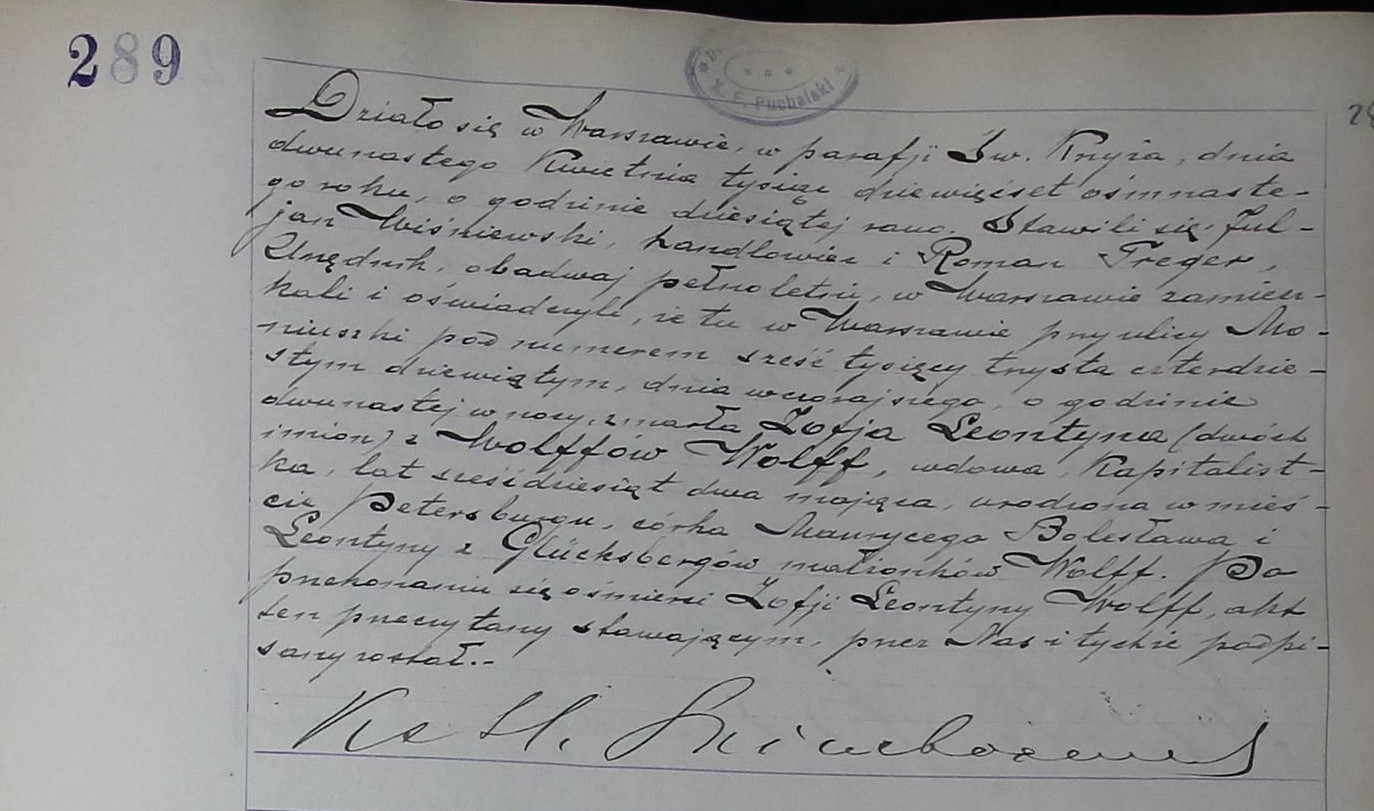 289
K. F. Puchalski
Działo się w Warszawie, w parafji Św. Krzyża, dnia
dwunastego Kwietnia tysiąc dziewięćset ośmnaste-
go roku, o godzinie dziesiątej rano. Stawili się: Jul-
jan Wiśniewski, handlowiec i Roman Treger,
Urzędnik, obadwaj pełnoletni, w Warszawie zamiesz-
kali i oświadczyli, że tu w Warszawie przy ulicy Mo-
niuszki pod numerem sześć tysięcy trzysta czterdzie-
stym dziewiątym, dnia wczorajszego, o godzinie
dwunastej w nocy, zmarła Zofja Leontyna (dwóch
imion) z Wolffów Wolff, wdowa, Kapitalist-
ka, lat sześćdziesiąt dwa mająca, urodzona w mieś-
cie Petersburgu, córka Maurycego Bolesława i
Leontyny z Glücksbergów małżonków Wolff. Po
przekonaniu się o śmierci Zofji Leontyny Wolff, akt
ten przeczytany stawającym, przez Nas i tychże podpi-
sany został.-
Ks